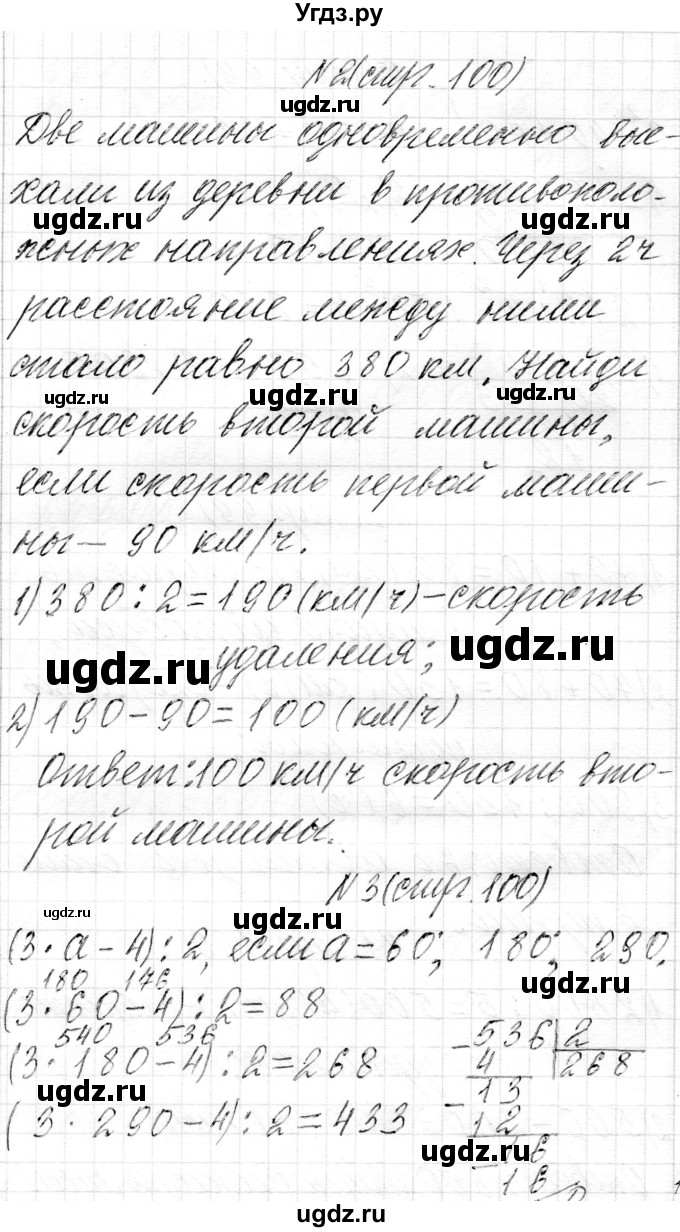 Угдз.ру
№2(стр. 100)
Две машины одновременно вые-
хали из деревни в противополо-
жных направлениях. Через 2ч
расстояние между ними
стало равно 380 км. Найди
скорость второй машины,
если скорость первой маши-
ны — 90 км/ч.
1) 380 : 2 = 190 (км/ч) – скорость
удаления;
2) 190 – 90 = 100 (км/ч)
Ответ: 100 км/ч скорость вто-
рой машины.
№3(стр. 100)
(3 · а – 4) : 2, если а = 60; 180; 290.
180 176
(3 · 60 – 4) : 2 = 88
540 536
(3 · 180 – 4) : 2 = 268
(3 · 290 – 4) : 2 = 433
– 536 | 2
4 268
– 13
12
– 16
16
0
ugdz.ru
ugdz.ru
ugdz.ru
ugdz.ru
ugdz.ru
ugdz.ru
ugdz.ru
ugdz.ru
ugdz.ru
ugdz.ru
ugdz.ru
ugdz.ru
ugdz.ru
ugdz.ru